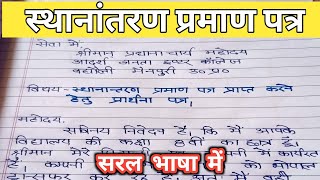 स्थानांतरण प्रमाण पत्र
सेवा में,
श्रीमान प्रधानाचार्य महोदय
आदर्श जनता इण्टर कॉलेज
मैनपुरी उ० प्र०
विषय- स्थानान्तरण प्रमाण पत्र प्राप्त करने
हेतु प्रार्थना पत्र।
महोदय,
सविनय निवेदन है, कि मैं आपके
विद्यालय की कक्षा 8वीं का छात्र हूँ।
श्रीमान मेरे में कार्यरत
सरल भाषा में
है कम्पनी का भोपाल